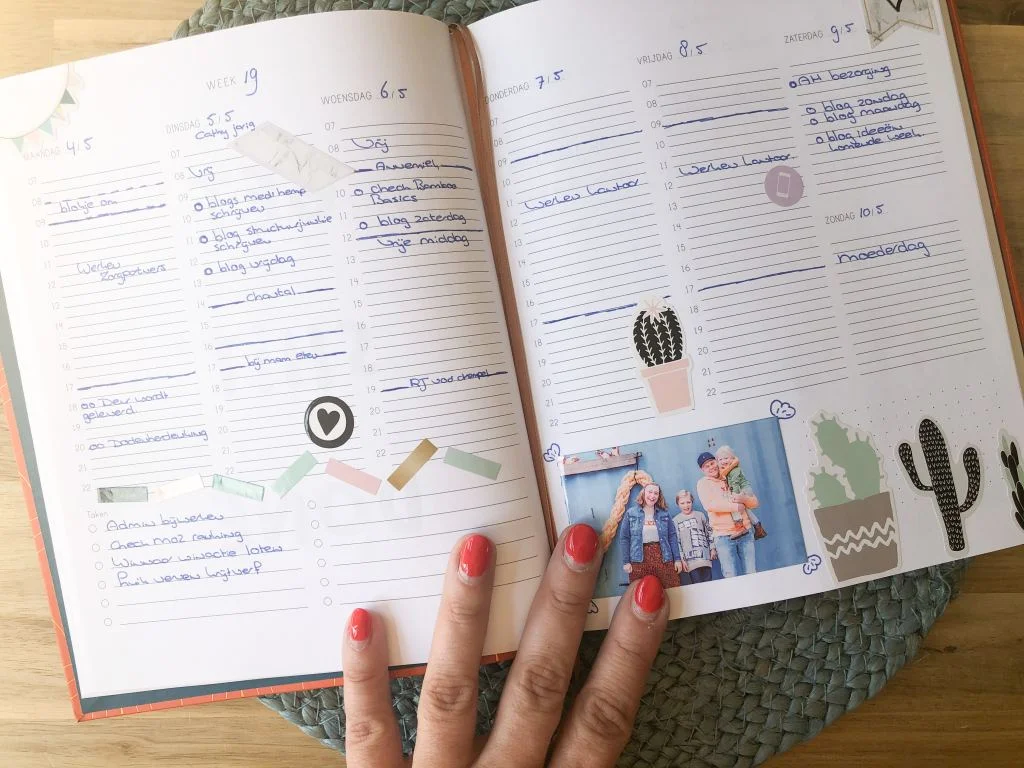 WEEK 19
MAANDAG 4/5
07
08
09
blokje om
10
11
Werken
Zorgpartners
12
13
14
15
16
17
18
oo Deur wordt
geleverd.
20
oo Dodenherdenking
22
DINSDAG 5/5
Cathy jarig
07
08
Vrij
09
o blogs medi hemp
schrijven
11
o blog structuurjunkie
schrijven
12
o blog vrijdag
13
14
Chantal
15
16
17
bij mam eten
18
19
20
21
22
WOENSDAG 6/5
07
08
Vrij
10
o Check Bamboo
Basics
11
o blog zaterdag
12
Vrije middag
13
15
16
17
18
19
20
21
22
DONDERDAG 7/5
07
08
09
10
11
Werken kantoor
12
13
14
15
16
17
18
19
20
21
22
VRIJDAG 8/5
07
08
09
11
Werken kantoor
12
13
14
15
16
17
18
20
21
22
ZATERDAG 9/5
o AH bezorging
o blog zondag
o blog maandag
o blog ideeën
komende week.
ZONDAG 10/5
moederdag
Taken
Admin bijwerken
Check
Winnaar winactie loten